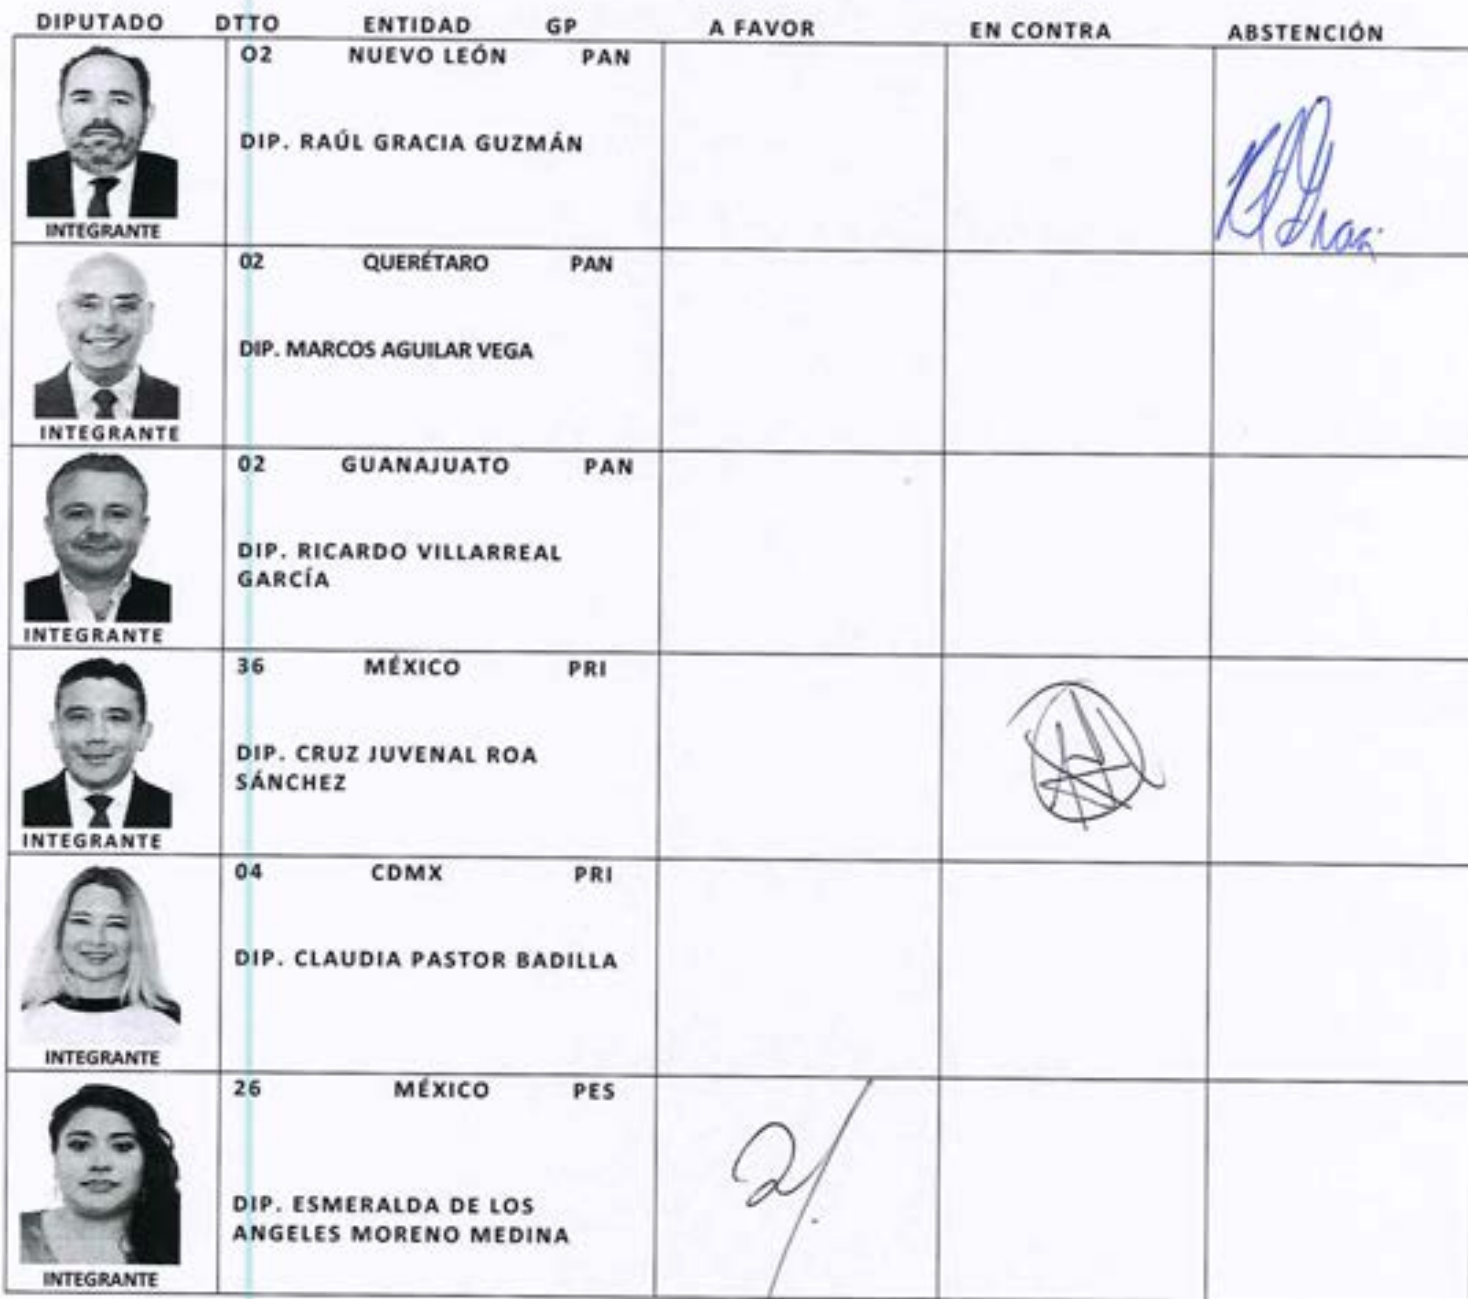 DIPUTADO DTTO ENTIDAD GP A FAVOR EN CONTRA ABSTENCIÓN
02 NUEVO LEÓN PAN
DIP. RAÚL GRACIA GUZMÁN
INTEGRANTE
02 QUERÉTARO PAN
DIP. MARCOS AGUILAR VEGA
INTEGRANTE
02 GUANAJUATO PAN
DIP. RICARDO VILLARREAL
GARCÍA
INTEGRANTE
36 MÉXICO PRI
DIP. CRUZ JUVENAL ROA
SÁNCHEZ
INTEGRANTE
04 CDMX PRI
DIP. CLAUDIA PASTOR BADILLA
INTEGRANTE
26 MÉXICO PES
DIP. ESMERALDA DE LOS
ANGELES MORENO MEDINA
INTEGRANTE